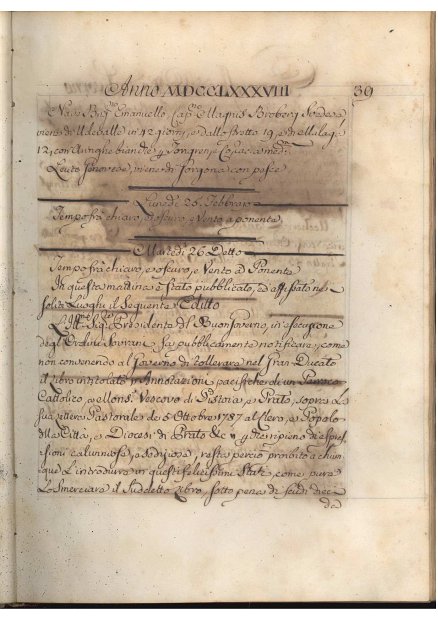 Anno MDCCLXXXVIII 39
Nave Brig.no Emanuello Cap.no Magnis Broberg Svedese
viene di Udevalle in 42 giorni, e dallo Stretto 19, e di Malaga
12, con Aringhe bianche
Leuto Genovese, viene di Gorgona con pesce
Lunedi 25. Febbraio
Tempo frà chiaro, e oscuro, e Vento a ponente
Martedi 26 Detto
Tempo frà chiaro, e oscuro, e Vento a Ponente
In questa mattina è stato pubblicato, ed affissato nei
soliti Luoghi il Seguente Editto
L'Ill.mo Sig.e Presidente del Buon Governo, in esecuzione
degl'Ordini Sovrani fà pubblicamente notificare, come
non convenendo al Governo di tollerare nel Gran Ducato
il Libro intitolato Annotazioni pacifiche di un Parroco
Cattolico, a Mons. Vescovo di Pistoia, e Prato, sopra la
sua Lettera Pastorale de 5 Ottobre 1787 al Clero, e Popolo
della Città, e Diocesi di Prato &c ripieno di espres-
sioni calunniose, e sediziose, resta perciò proibito a chiun-
que l'introdurre in questi felicissimi Stati, come pure
lo smerciare il Sudetto Libro, sotto pena di scudi diece